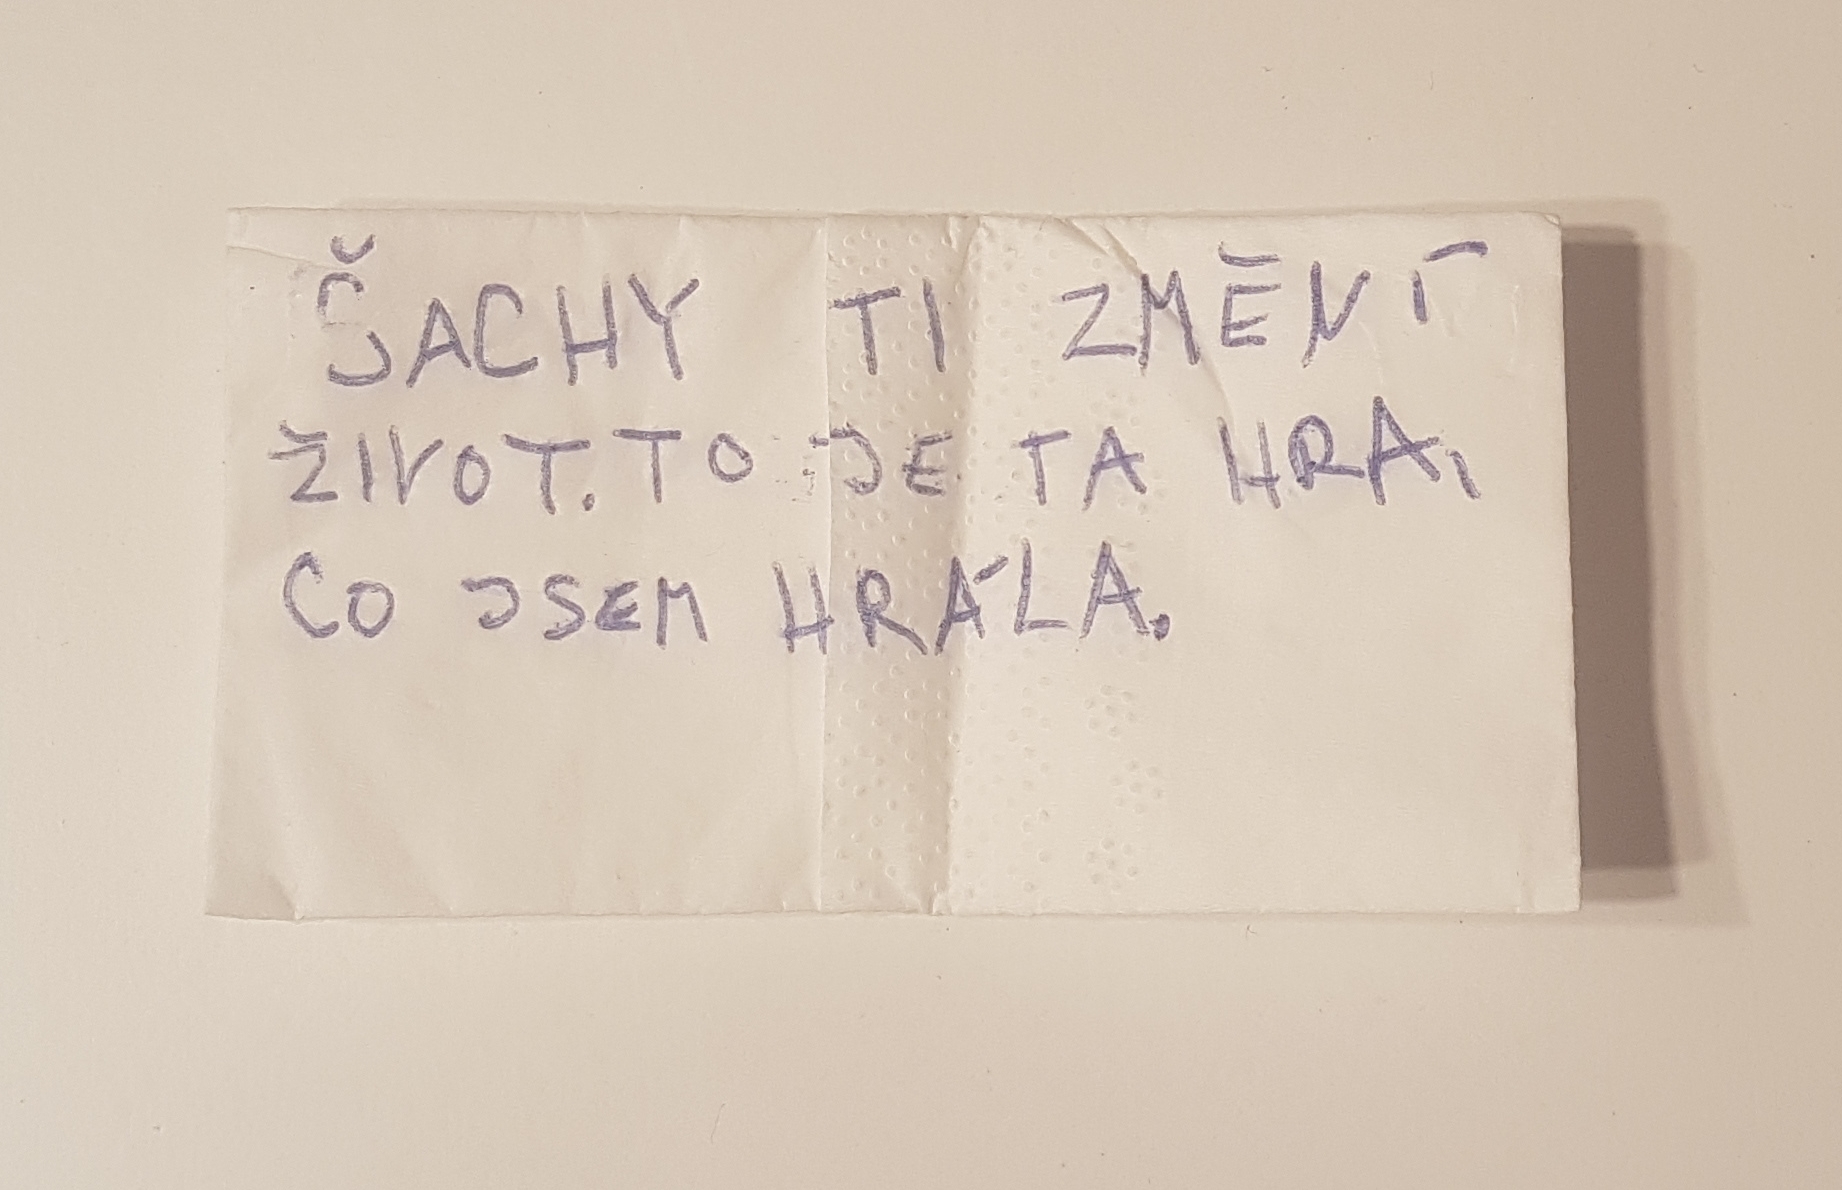 ŠACHY TI ZMĚNÍ
ŽIVOT. TO JE TA HRA,
CO JSEM HRÁLA.